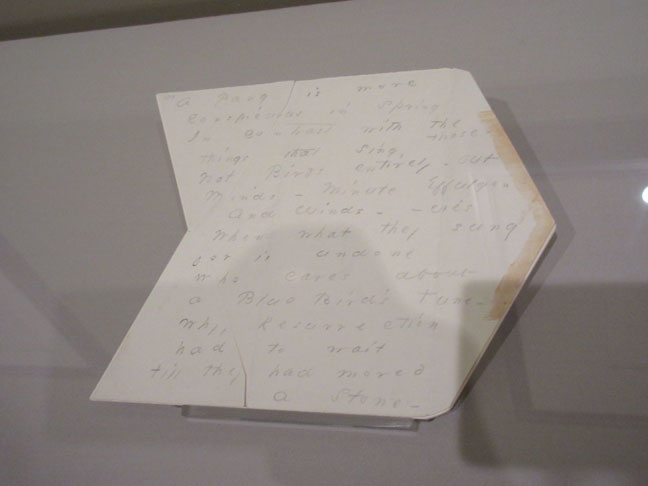 A Pang is more
Conspicuous in Spring
In contrast with the
those
things that sing
Not Birds entirely - but
Minds - Minute Effulgen
cies
And Winds -
When what they sung
for is undone
Who cares about
a Blue Bird's Tune -
Why, Resurrection
had to wait
till they had moved
a Stone -